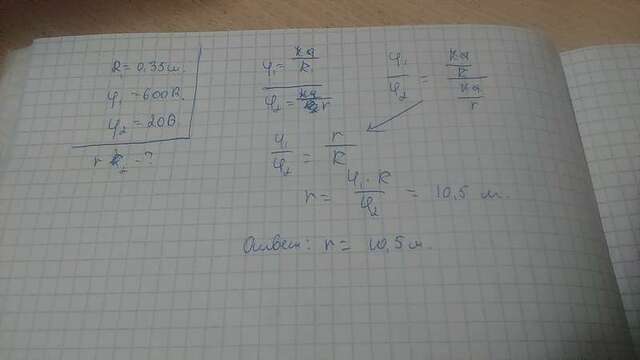 R = 0,35 м.
φ₁ = 600 В.
φ₂ = 20 В
r - ?
φ₁ = kq / R
φ₂ = kq / r
φ₁ / φ₂ = (kq / R) / (kq / r)
φ₁ / φ₂ = r / R
r = φ₁ · R / φ₂ = 10,5 м.
Ответ: r = 10,5 м.